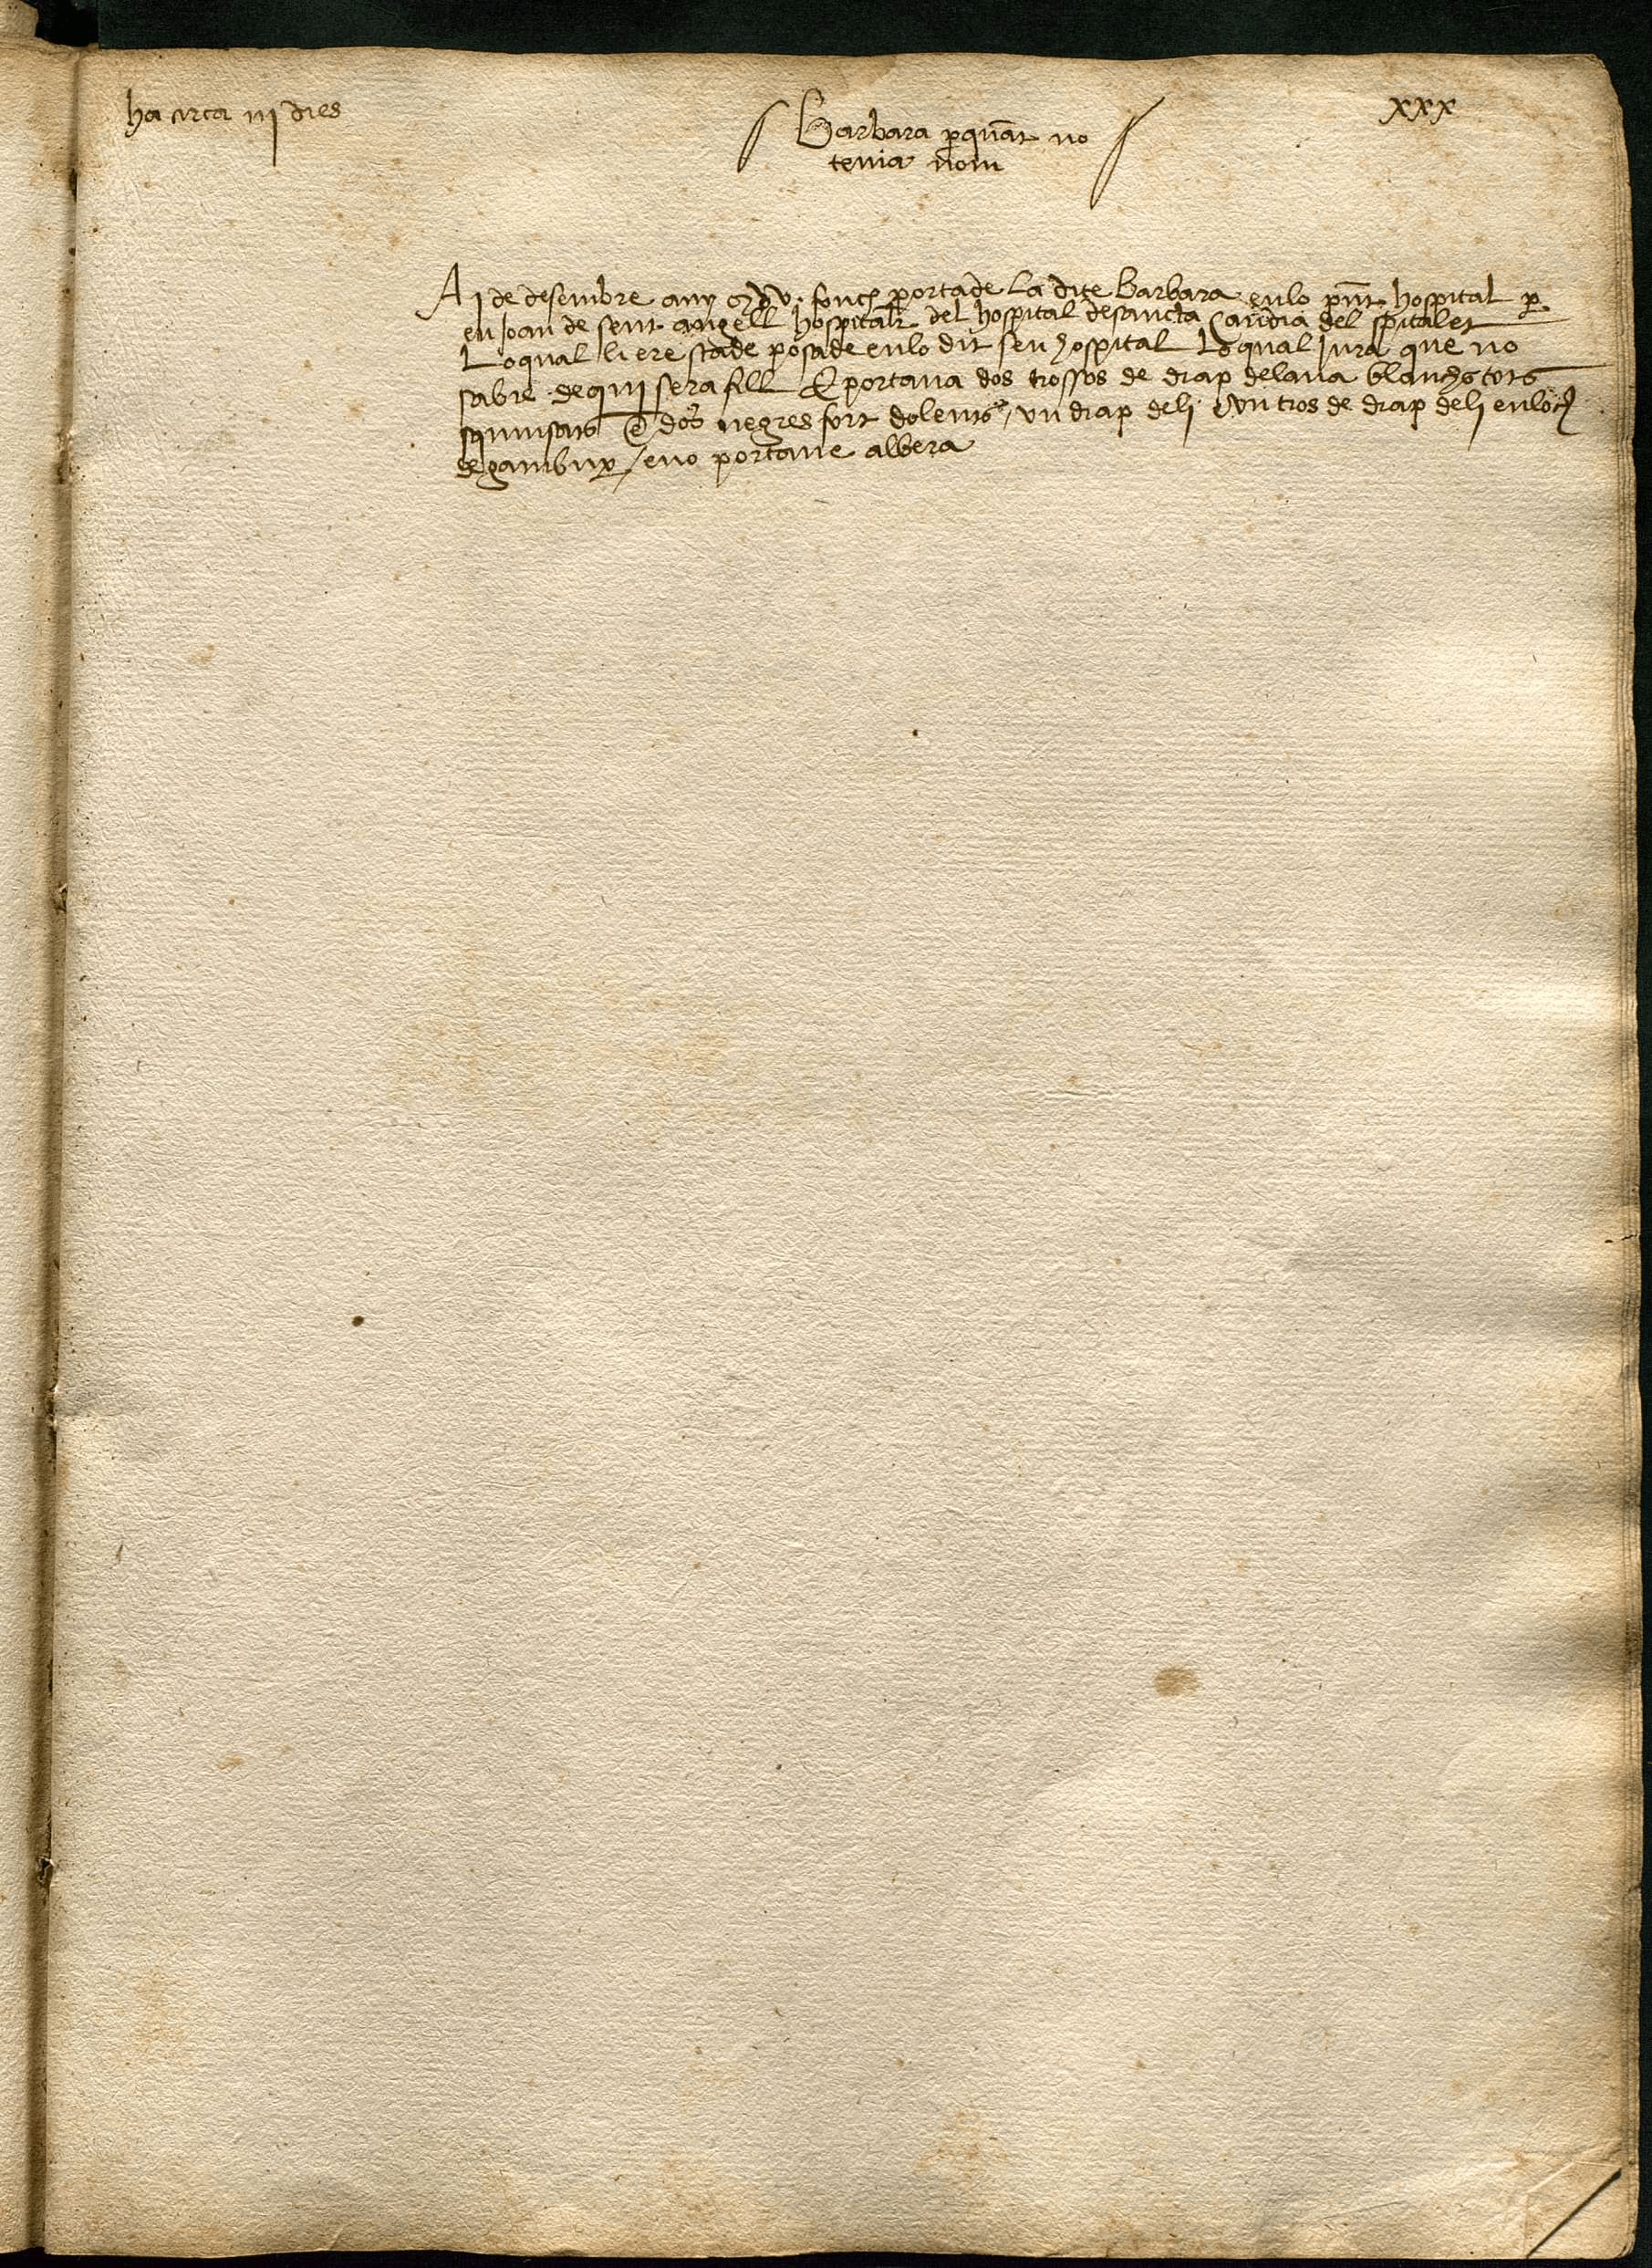 ha circa iij dies
Barbara perquāt no
tenia nom
xxx
A j de desembre any fonch portade la dite Barbara enlo pñt hospital per
en Joan de sent angell hospitaler del hospital desancta Candia del spitalet
Loqual li ere stade posade enlo dit seu hospital Loqual jura que no
sabie dequi sera fill E portaua dos trossos de drap delana blanchs tots
squinsats e dos negres fort dolents / vn drap deli e vn tros de drap deli enloch
de gambux / eno portaue albera